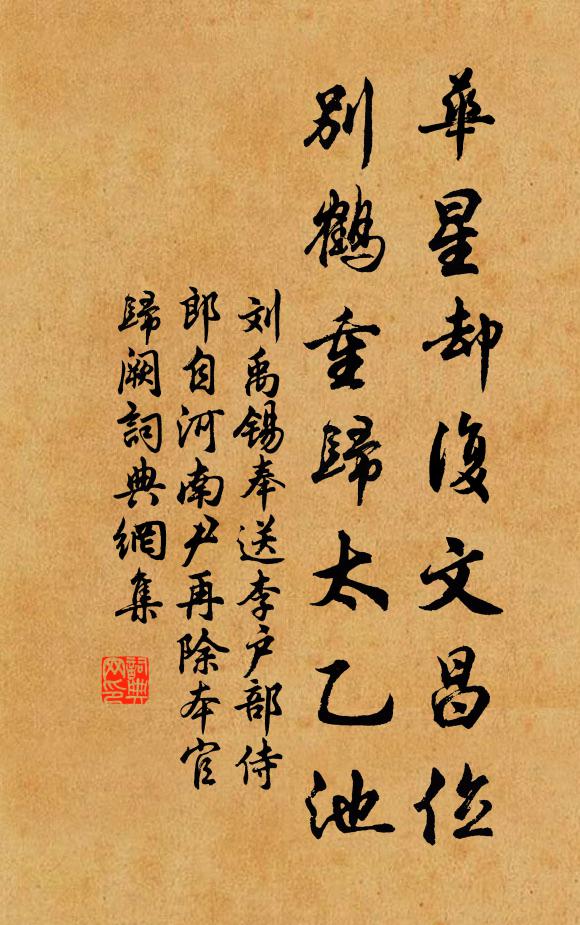 華星却復文昌位
別鶴重歸太乙池
刘禹錫奉送李户部侍
郎自河南尹再除本官
歸阙詞典網集
詞典网印